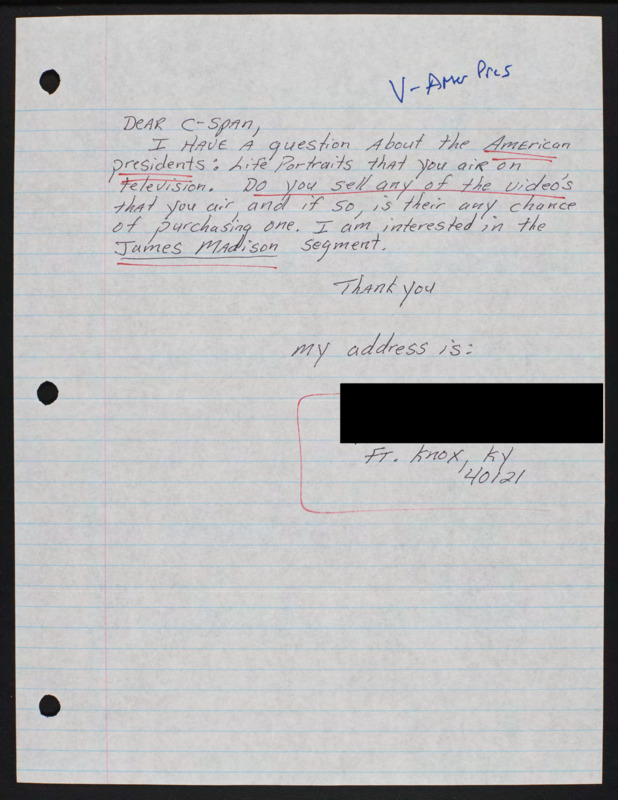 V-Amer Pres
Dear C-Span,
I have a question about the American
presidents: Life Portraits that you air on
television. Do you sell any of the video's
that you air, and if so, is their any chance
of purchasing one. I am interested in the
James Madison segment.
Thank you
my address is:
Ft. Knox, Ky
40121